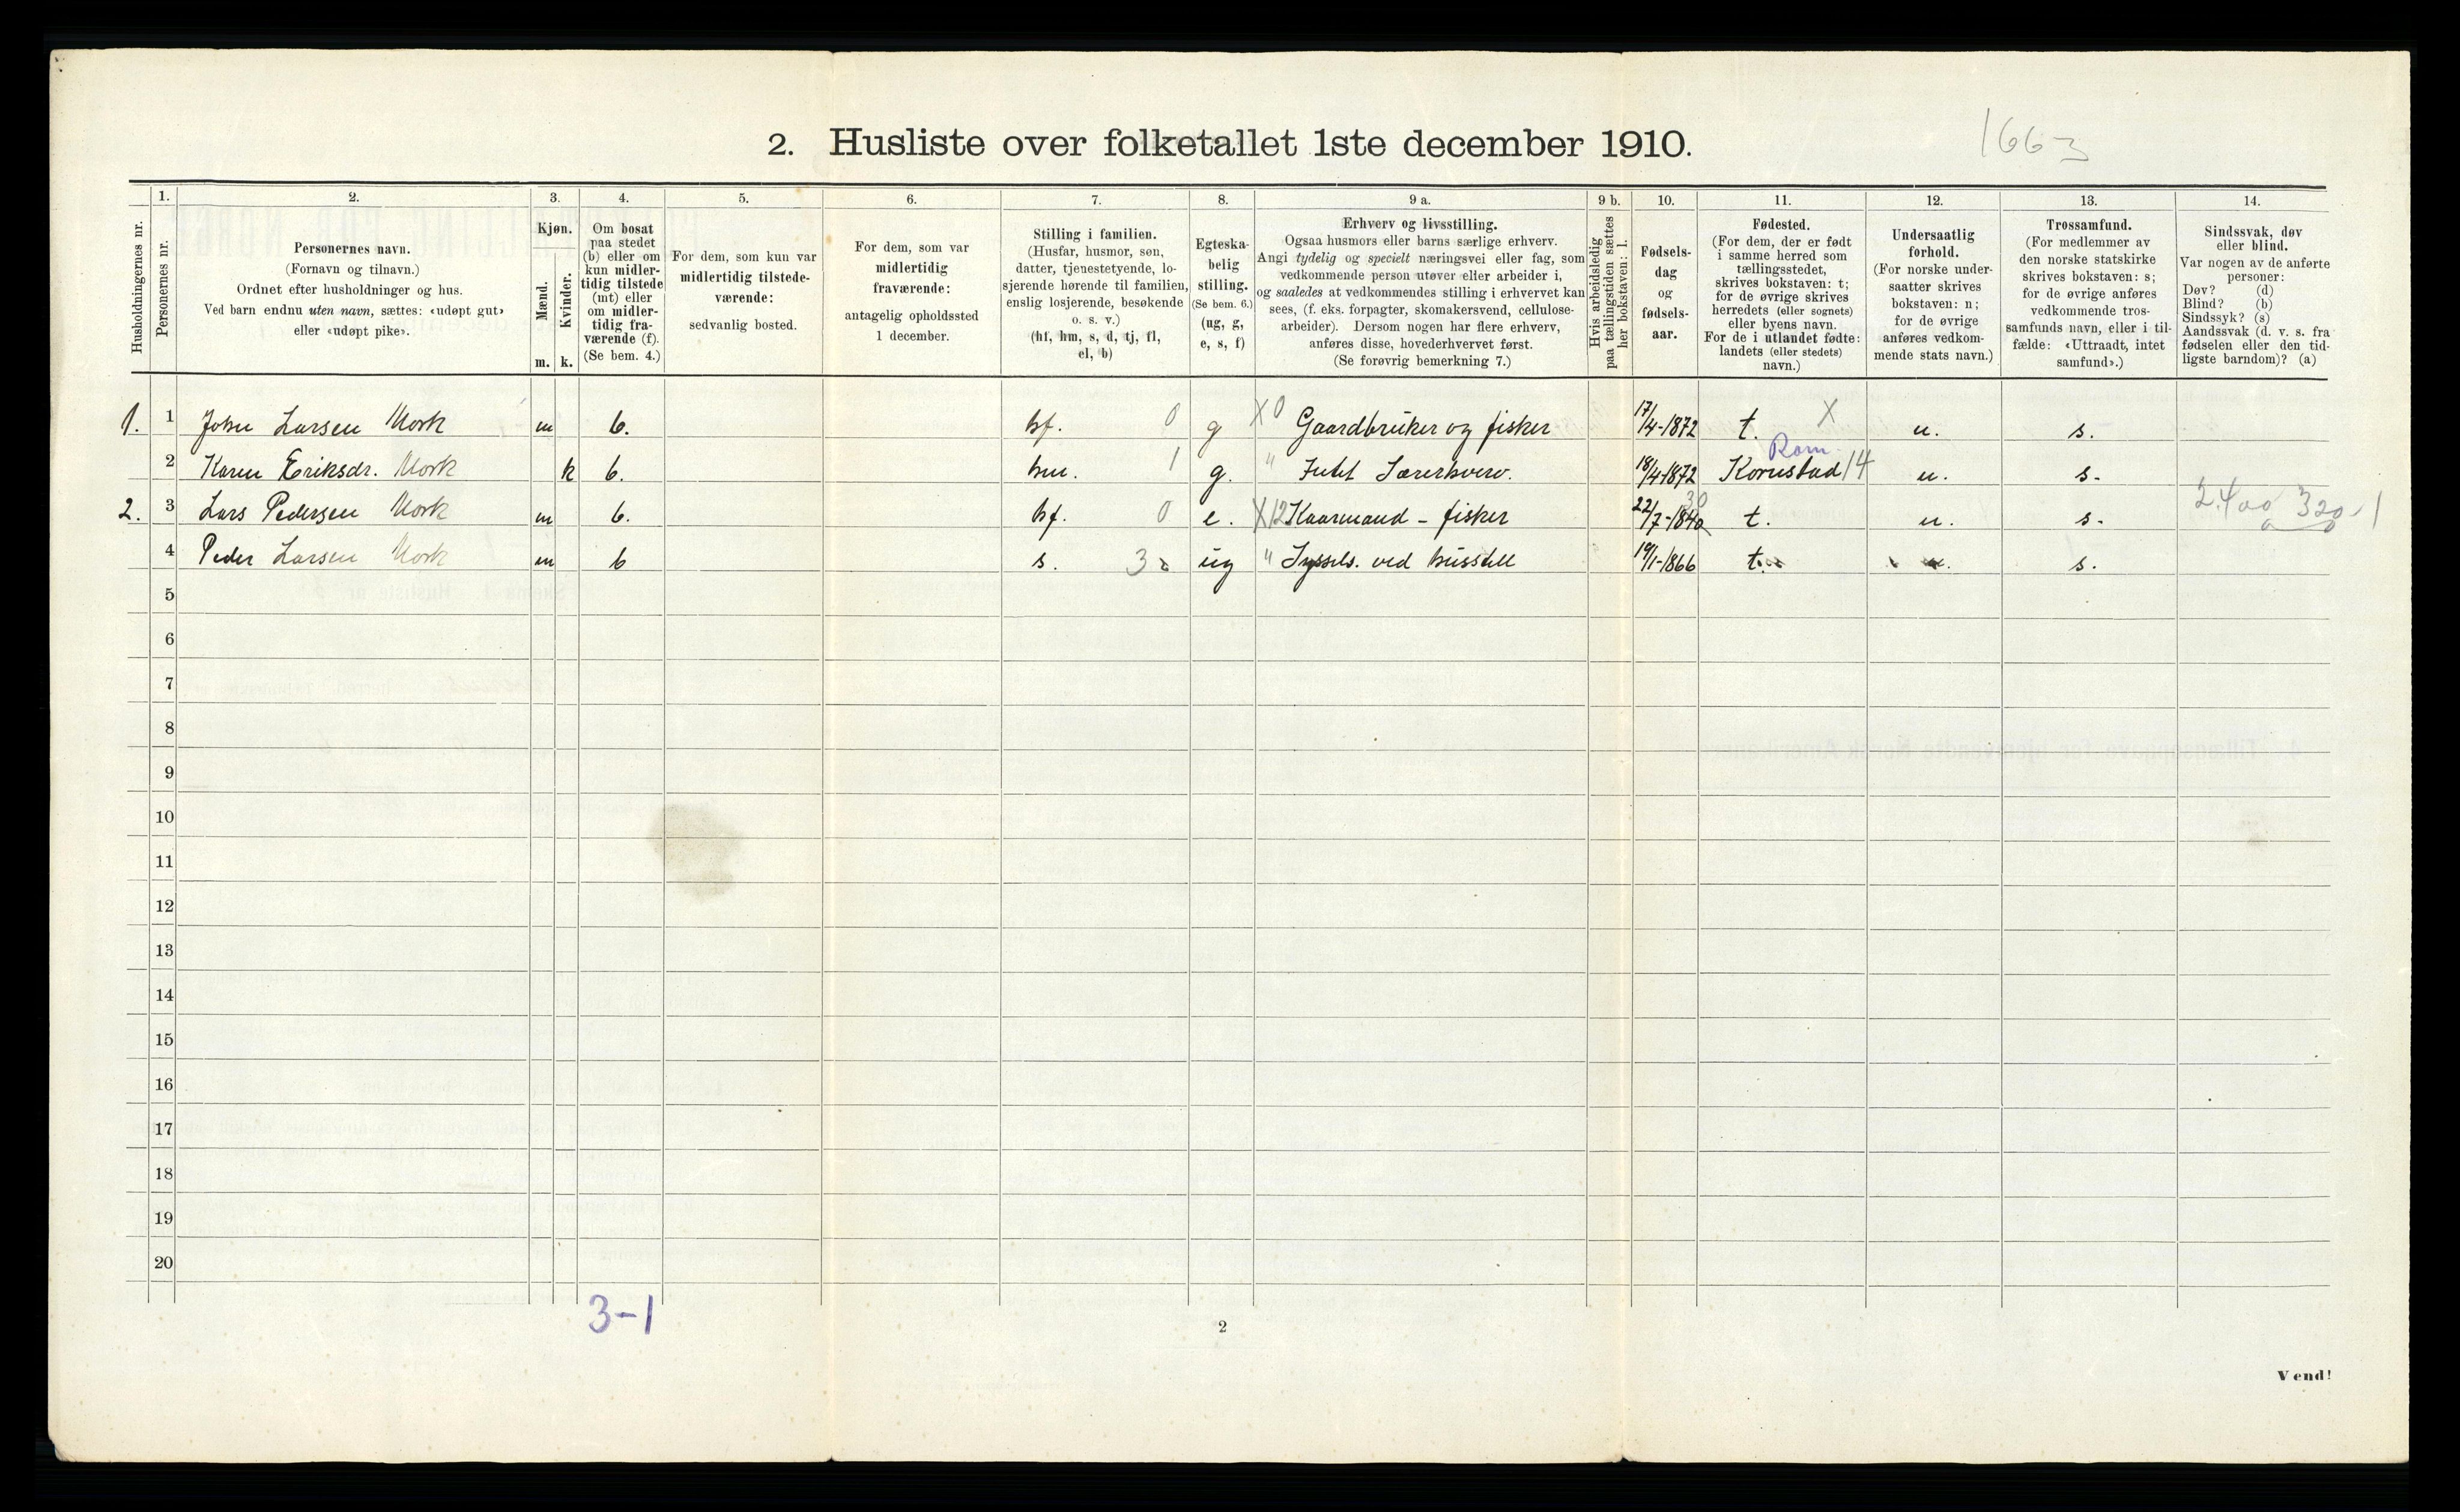 1663
2. Husliste over folketallet 1ste december 1910.
Husholdningernes nr.
1.
Personernes nr.
2.
Personernes navn.
(Fornavn og tilnavn.)
Ordnet efter husholdninger og hus.
Ved barn endnu uten navn, sættes: «udøpt gut»
eller «udøpt pike».
3.
Kjøn.
Mænd.
Kvinder.
m. k.
4.
Om bosat
paa stedet
(b) eller om
kun midler-
tidig tilstede
(mt) eller
om midler-
tidig fra-
værende (f).
(Se bem. 4.)
5.
For dem, som kun var
midlertidig tilstede-
værende:
sedvanlig bosted.
6.
For dem, som var
midlertidig
fraværende:
antagelig opholdssted
1 december.
7.
Stilling i familien.
(Husfar, husmor, søn,
datter, tjenestetyende, lo-
sjerende hørende til familien,
enslig losjerende, besøkende
o. s. v.)
(hf, hm, s, d, tj, fl,
el, b)
8.
Egteska-
belig
stilling.
(Se bem. 6.)
(ug, g,
e, s, f)
9 a.
Erhverv og livsstilling.
Ogsaa husmors eller barns særlige erhverv.
Angi tydelig og specielt næringsvei eller fag, som
vedkommende person utøver eller arbeider i,
og saaledes at vedkommendes stilling i erhvervet kan
sees, (f. eks. forpagter, skomakersvend, cellulose-
arbeider). Dersom nogen har flere erhverv,
anføres disse, hovederhvervet først.
(Se forøvrig bemerkning 7.)
9 b.
Hvis arbeidsledig
paa tællingstiden sættes
her bokstaven: l.
10.
Fødsels-
dag
og
fødsels-
aar.
11.
Fødested.
(For dem, der er født
i samme herred som
tællingsstedet,
skrives bokstaven: t;
for de øvrige skrives
herredets (eller sognets)
eller byens navn.
For de i utlandet fødte:
landets (eller stedets)
navn.)
12.
Undersaatlig
forhold.
(For norske under-
saatter skrives
bokstaven: n;
for de øvrige
anføres vedkom-
mende stats navn.)
13.
Trossamfund.
(For medlemmer av
den norske statskirke
skrives bokstaven: s;
for de øvrige anføres
vedkommende tros-
samfunds navn, eller i til-
fælde: «Uttraadt, intet
samfund».)
14.
Sindssvak, døv
eller blind.
Var nogen av de anførte
personer:
Døv? (d)
Blind? (b)
Sindssyk? (s)
Aandssvak (d. v. s. fra
fødselen eller den tid-
ligste barndom)? (a)
1. 1 John Larsen Mork m b. hf. 0 g X0 Gaardbruker og fisker 17/4-1872 t. X n. s.
Rom
2 Karen Eriksdr. Mork k b. hm. 1 g. " Intet Særerhverv. 18/4-1872 Kornstad 14 n. s.
30
2. 3 Lars Pedersen Mork m b. hf. 0 e. X12 Kaarmand - fisker 22/7-1840 t. n. s. 2.400 320-1
4 Peder Larsen Mork m b s. 3 ug " Syssels. ved husstell 19/1-1866 t. n. s.
5
6
7
8
9
10
11
12
13
14
15
16
17
18
19
20
3-1
2
Vend!